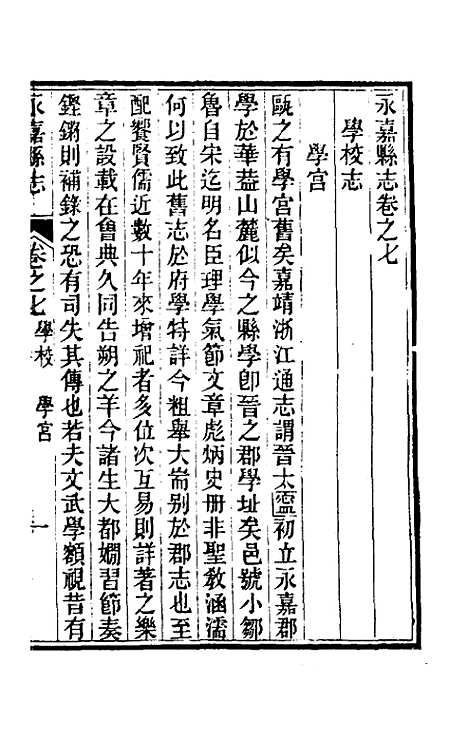 永嘉縣志卷之七
學校志
學宮
甌之有學宮舊矣嘉靖浙江通志謂晉太寧初立永嘉郡
學於華葢山麓似今之縣學卽晉之郡學址矣邑號小鄒
魯自宋迄明名臣理學氣節文章彪炳史册非聖敎涵濡
何以致此舊志於府學特詳今粗舉大耑别於郡志也至
配饗賢儒近數十年來增祀者多位次互易則詳著之樂
章之設載在會典久同告朔之羊今諸生大都嫺習節奏
鏗鏘則補錄之恐有司失其傳也若夫文武學額視昔有
永嘉縣志
卷之七 學校 學宮 一